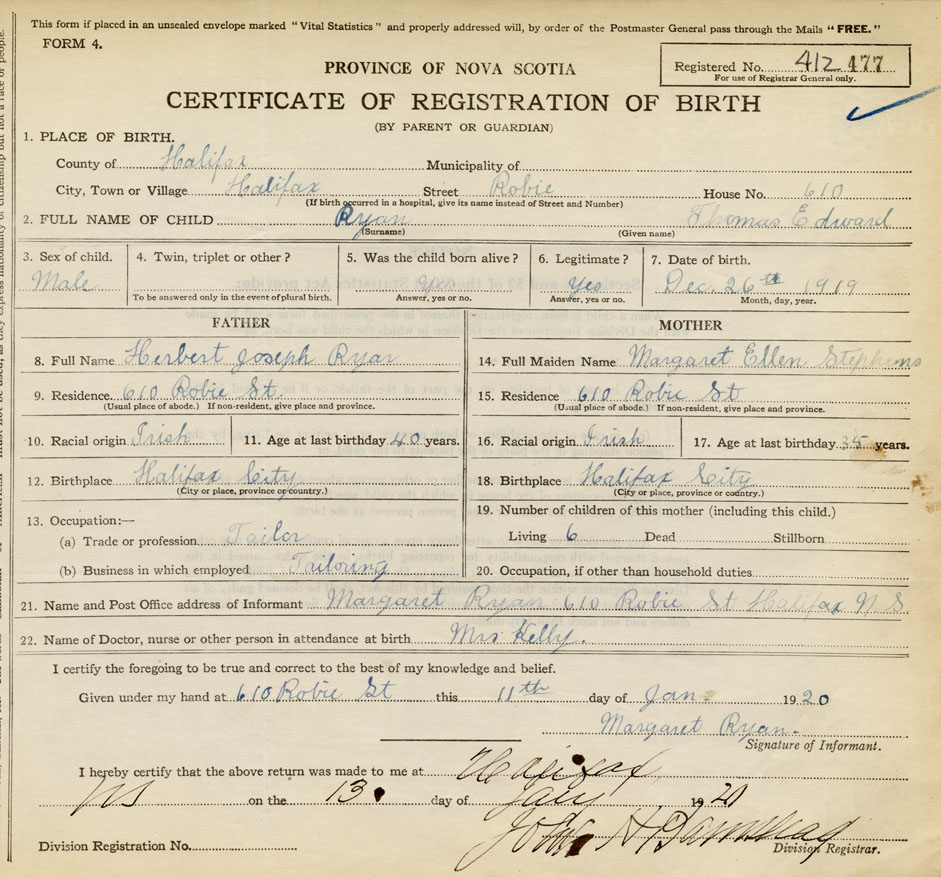 This form if placed in an unsealed envelope marked "Vital Statistics" and properly addressed will, by order of the Postmaster General pass through the Mails "FREE."
FORM 4.
Registered No. 412 477
For use of Registrar General only.
PROVINCE OF NOVA SCOTIA
CERTIFICATE OF REGISTRATION OF BIRTH
(BY PARENT OR GUARDIAN)
1. PLACE OF BIRTH.
County of Halifax Municipality of
City, Town or Village Halifax Street Robie House No. 610
(If birth occurred in a hospital, give its name instead of Street and Number)
2. FULL NAME OF CHILD Ryan Thomas Edward
(Surname) (Given name)
3. Sex of child. 4. Twin, triplet or other? 5. Was the child born alive? 6. Legitimate? 7. Date of birth.
Male Yes Yes Dec. 26th 1919
To be answered only in the event of plural birth. Answer, yes or no. Answer, yes or no. Month, day, year.
FATHER
8. Full Name Herbert Joseph Ryan
9. Residence 610 Robie St.
(Usual place of abode.) If non-resident, give place and province.
10. Racial origin Irish 11. Age at last birthday 40 years.
12. Birthplace Halifax City
(City or place, province or country.)
13. Occupation:—
(a) Trade or profession Tailor
(b) Business in which employed Tailoring
MOTHER
14. Full Maiden Name Margaret Ellen Stephens
15. Residence 610 Robie St
(Usual place of abode.) If non-resident, give place and province.
16. Racial origin Irish 17. Age at last birthday 35 years.
18. Birthplace Halifax City
(City or place, province or country.)
19. Number of children of this mother (including this child.)
Living 6 Dead Stillborn
20. Occupation, if other than household duties
21. Name and Post Office address of Informant Margaret Ryan 610 Robie St Halifax N S
22. Name of Doctor, nurse or other person in attendance at birth Mrs Kelly.
I certify the foregoing to be true and correct to the best of my knowledge and belief.
Given under my hand at 610 Robie St this 11th day of Jan. 1920
Margaret Ryan.
Signature of Informant.
I hereby certify that the above return was made to me at Halifax
NS on the 13 day of Jany 1920
John H
Division Registration No. Division Registrar.